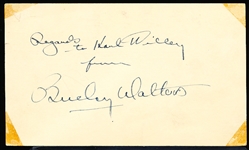 Regards
to Karl Willey
from
Bucky Walters